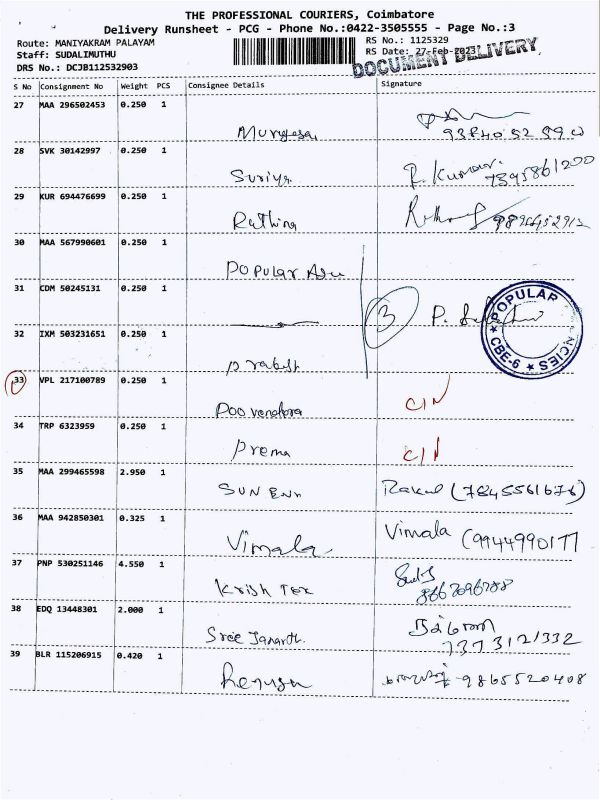 THE PROFESSIONAL COURIERS, Coimbatore
Delivery Runsheet - PCG - Phone No.:0422-3505555 - Page No.:3
Route: MANIYAKRAM PALAYAM RS No.: 1125329
Staff: SUDALIMUTHU RS Date: 27-Feb-2023
DRS No.: DCJB112532903 DOCUMENT DELIVERY
S No Consignment No Weight PCS Consignee Details Signature
27 MAA 296502453 0.250 1
Murugesa
28 SVK 30142997 0.250 1
Suriya R. Kumar 7395861200
29 KUR 694476699 0.250 1
Rathina
30 MAA 567990601 0.250 1
Popular Agu
31 CDM 50245131 0.250 1
3 P.
POPULAR
CBE-6
32 IXM 503231651 0.250 1
Prakash
33 VPL 217100789 0.250 1
Poovendora C/N
34 TRP 6323959 0.250 1
Prema C/N
35 MAA 299465598 2.950 1
SUN Enn Rakul (7845561676)
36 MAA 942850301 0.325 1
Vimala Vimala (994499017
37 PNP 530251146 4.550 1
Krish Tex
38 EDQ 13448301 2.000 1
Sree Janarth. 7373121332
39 BLR 115206915 0.420 1
Renuga 9865520408